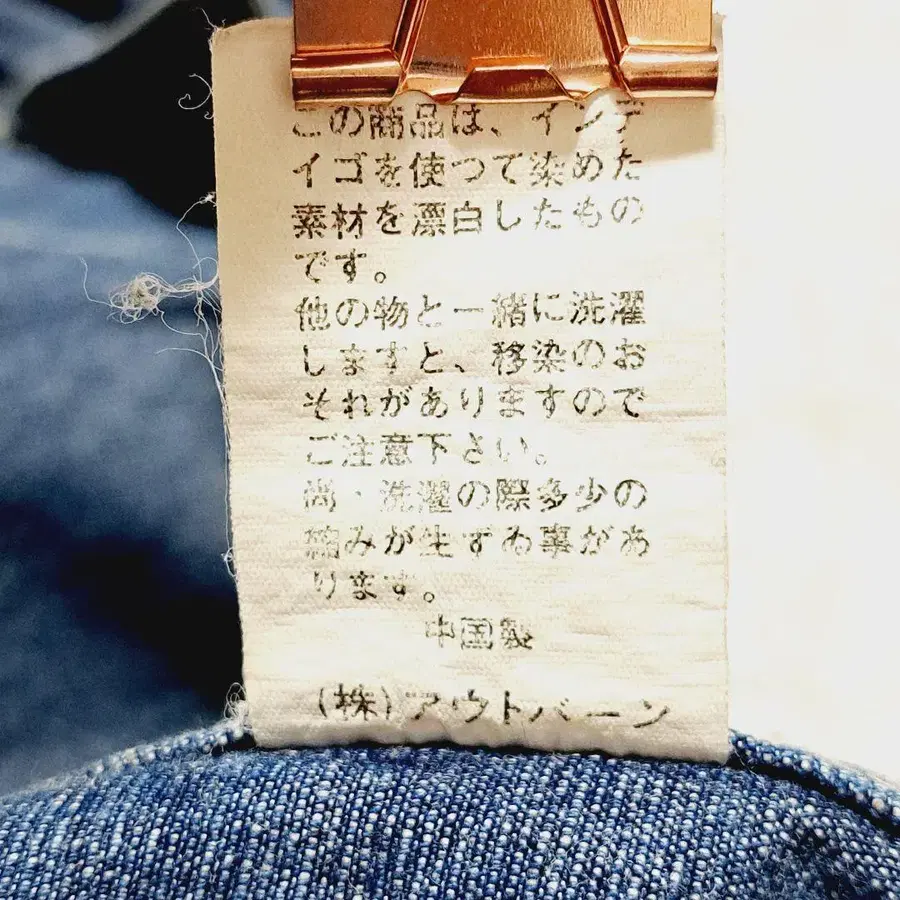 この商品は、インデ
イゴを使つて染めた
素材を漂白したもの
です。
他の物と一緒に洗濯
しますと、移染のお
それがありますので
ご注意下さい。
尚・洗濯の際多少の
縮みが生ずる事があ
ります。
中国製
(株)アウトバーン